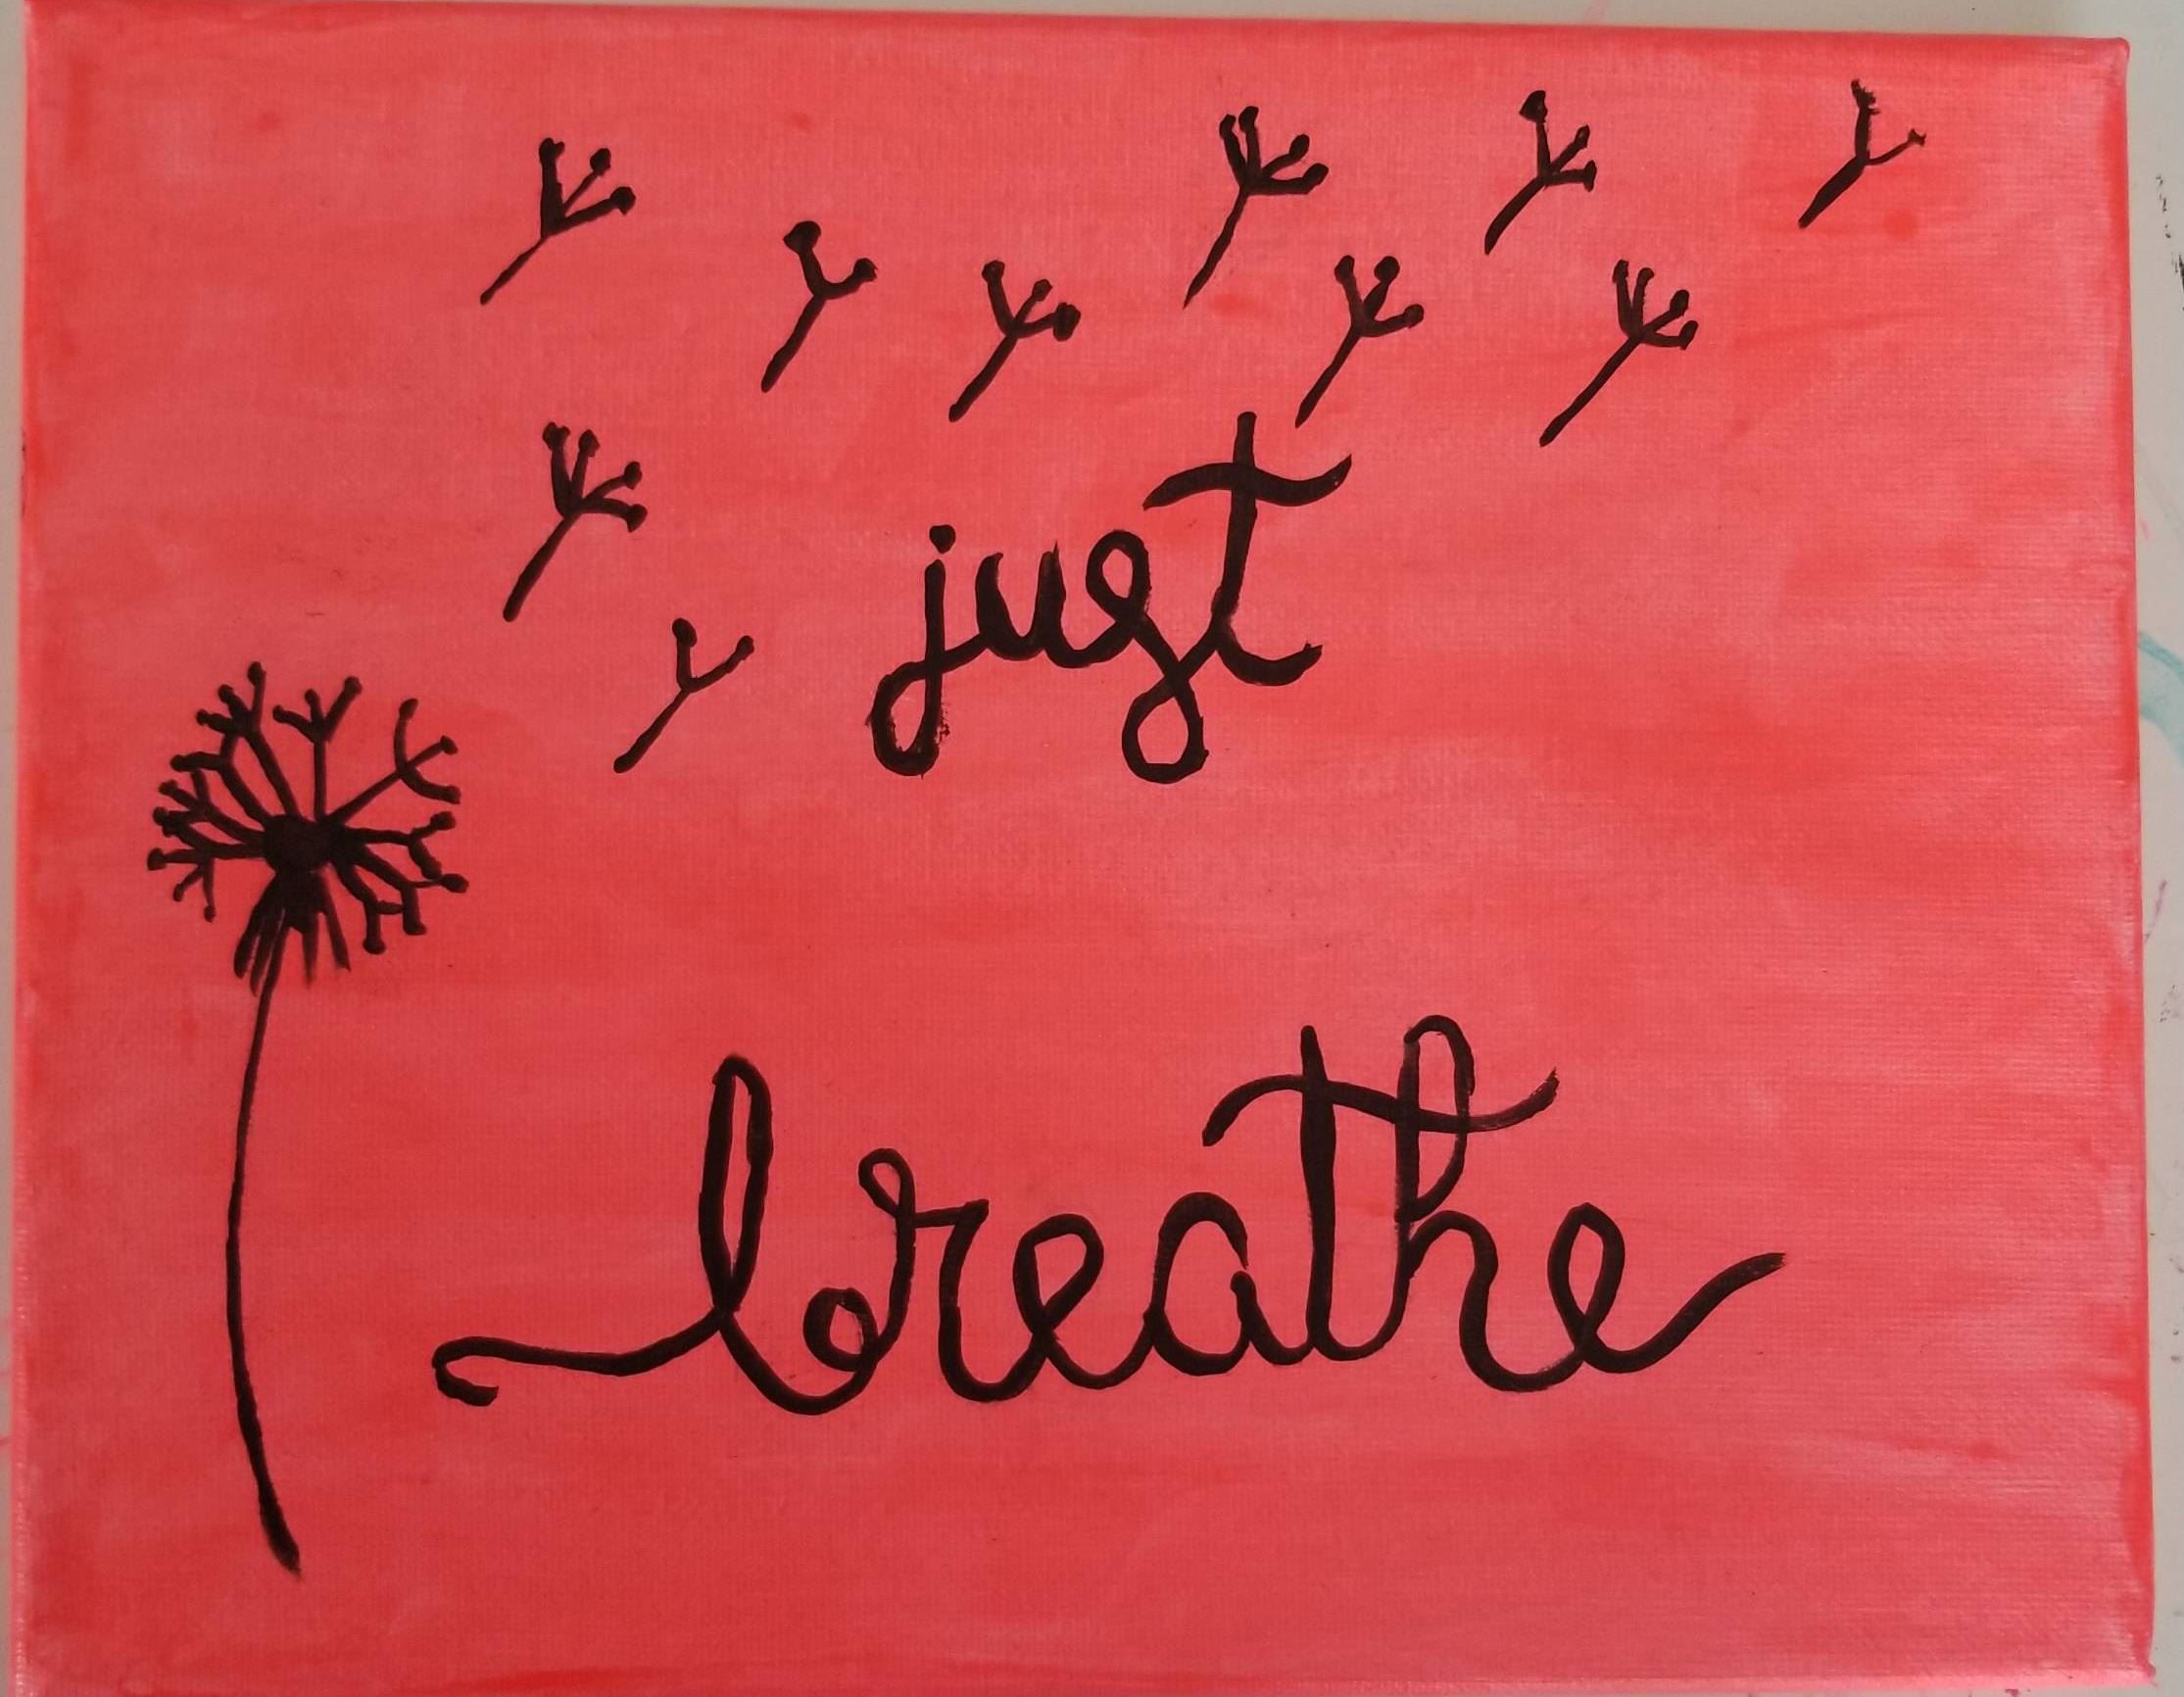 just
breathe